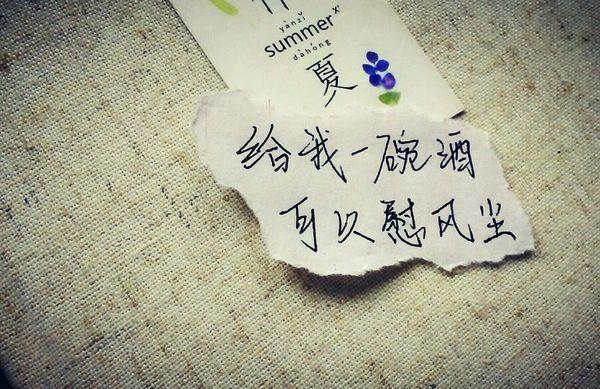 yànzǐ
summer x'
dàhóng
夏
给我一碗酒
可以慰风尘